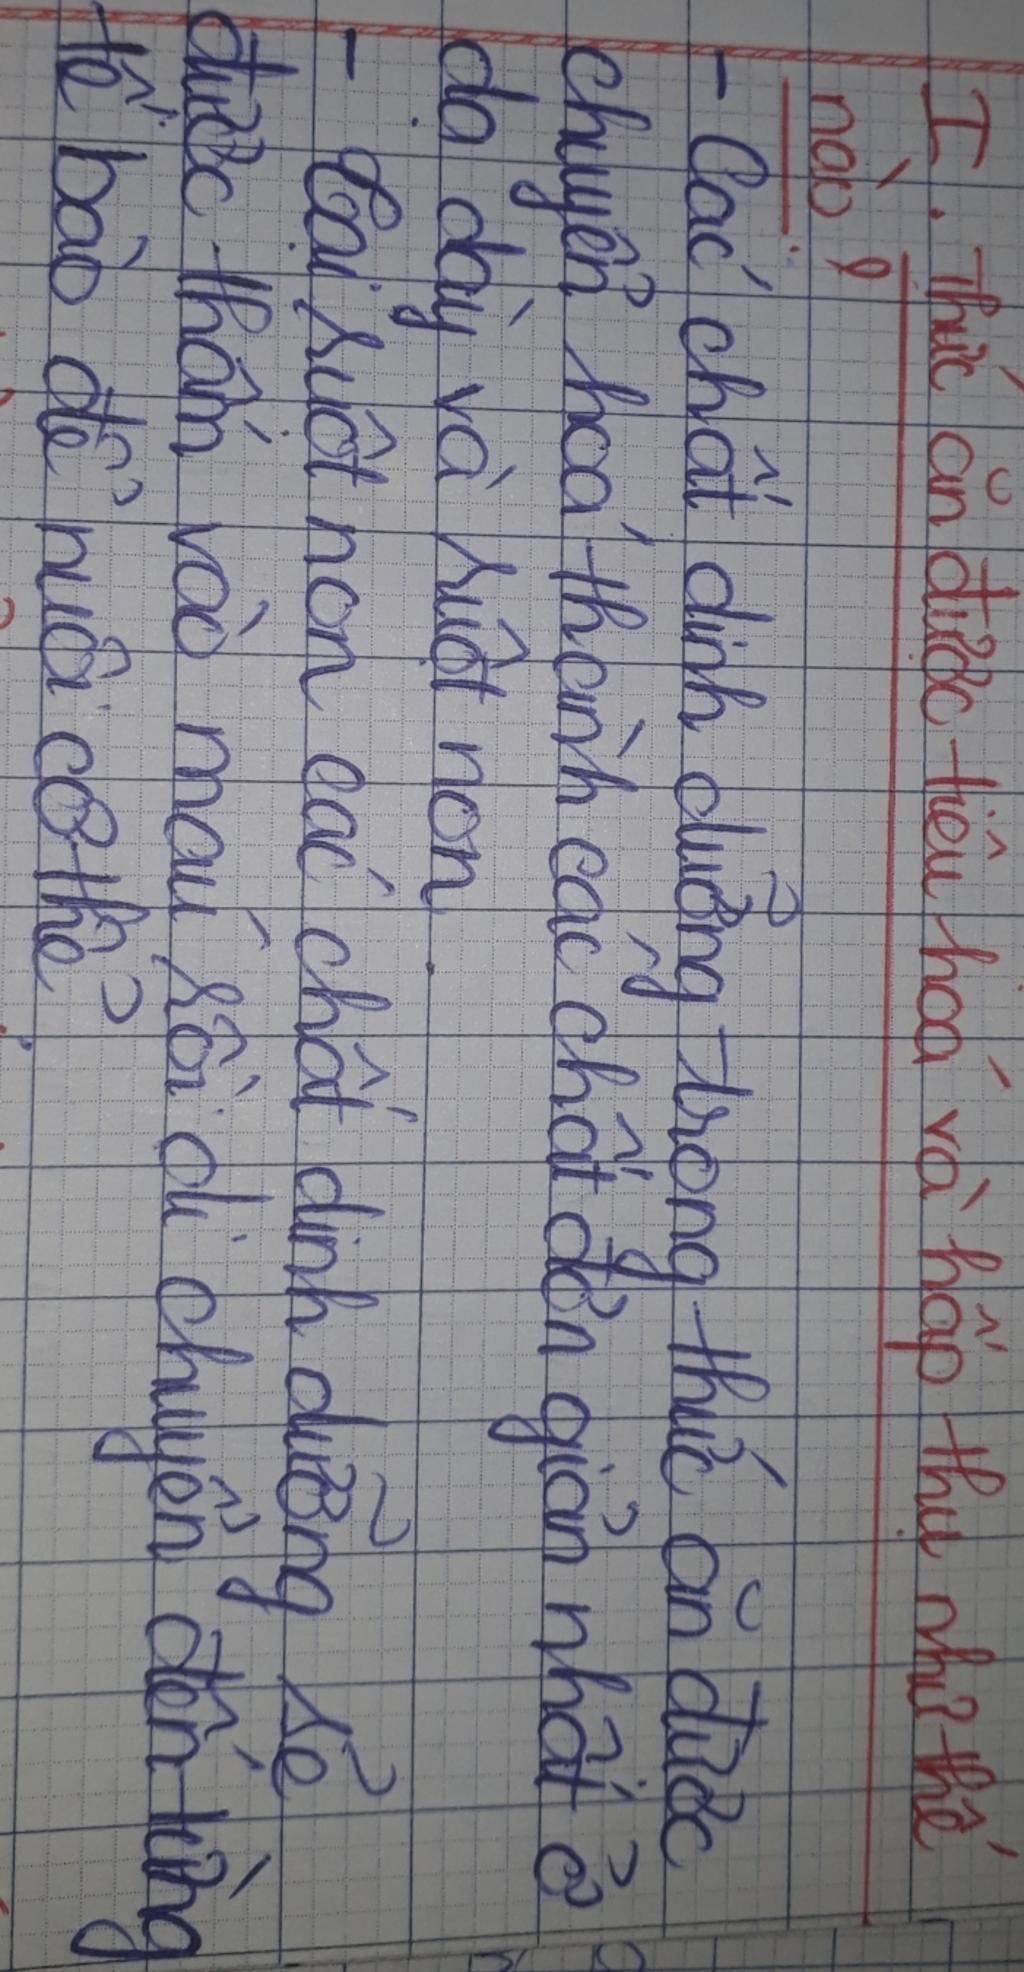 I. Thức ăn được tiêu hoá và hấp thụ như thế
nào?
- Các chất dinh dưỡng trong thức ăn được
chuyển hoá thành các chất đơn giản nhất ở
dạ dày và ruột non.
- Tại ruột non các chất dinh dưỡng sẽ
được thấm vào máu rồi di chuyển đến từng
tế bào để nuôi cơ thể.